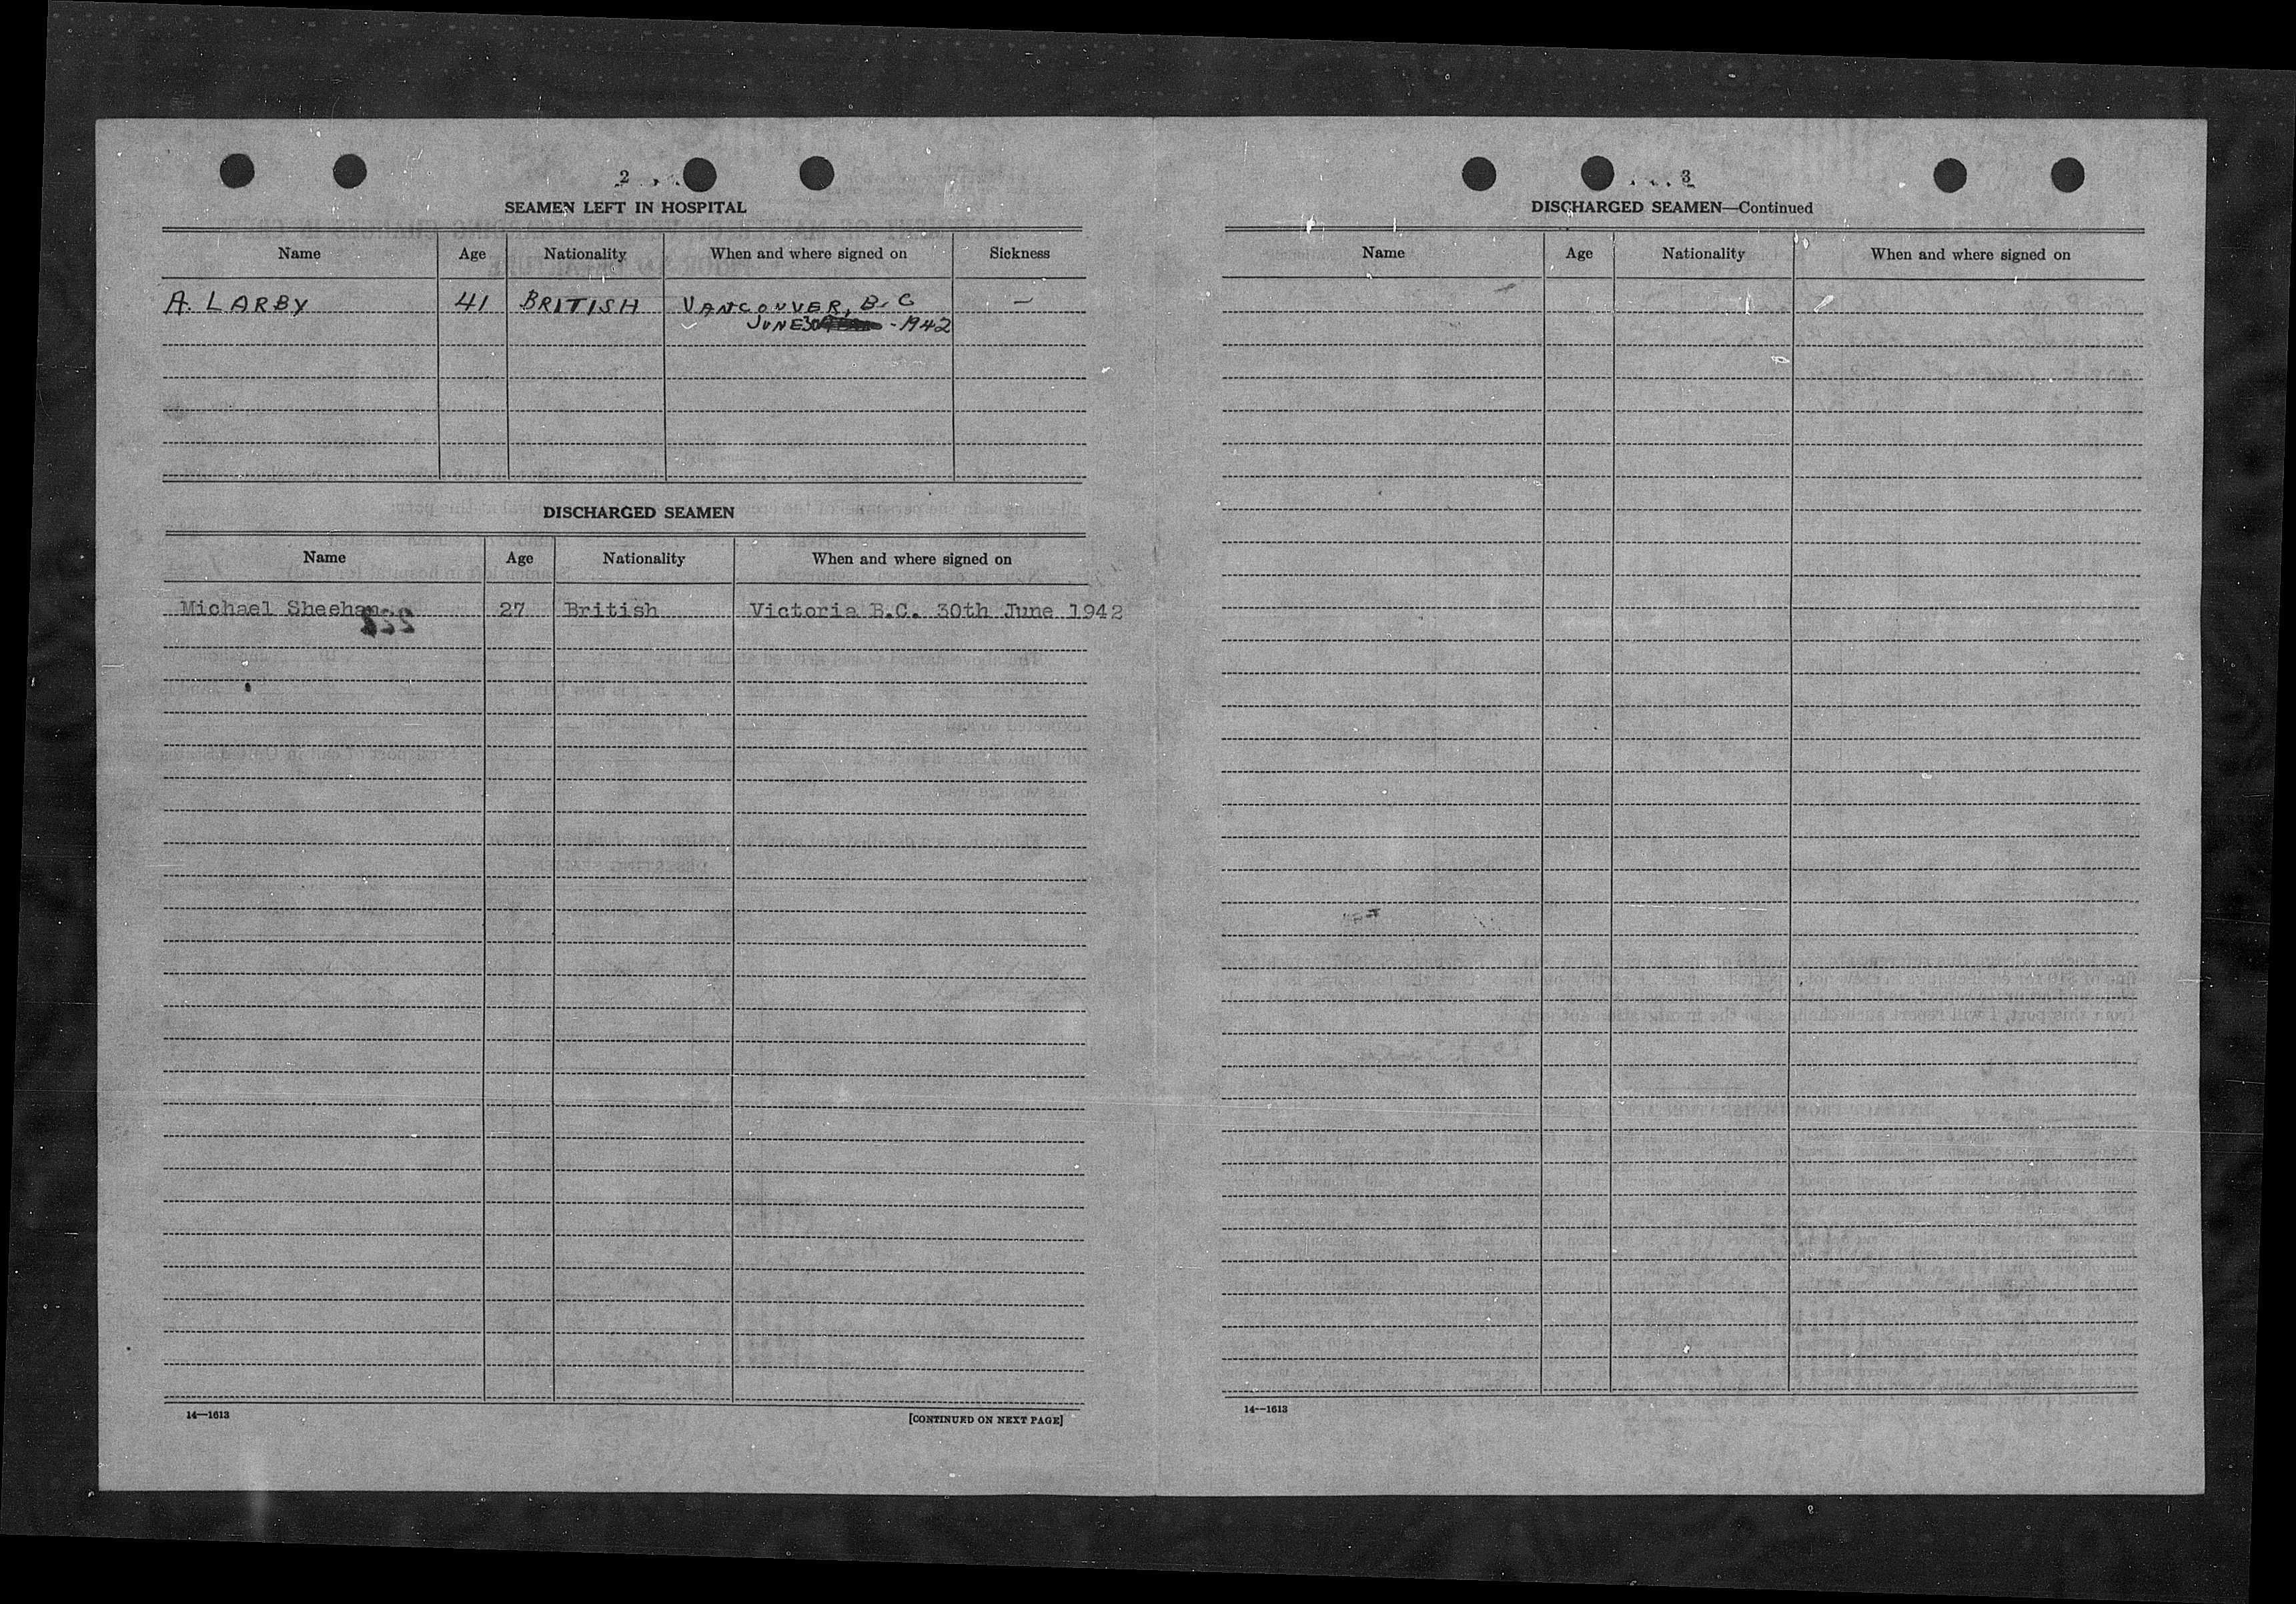 2
SEAMEN LEFT IN HOSPITAL
Name Age Nationality When and where signed on Sickness
A. LARBY 41 BRITISH VANCOUVER, B.C —
JUNE 30 - 1942
DISCHARGED SEAMEN
Name Age Nationality When and where signed on
Michael Sheehan 27 British Victoria B.C. 30th June 1942
14—1613 [CONTINUED ON NEXT PAGE]
3
DISCHARGED SEAMEN—Continued
Name Age Nationality When and where signed on
14—1613